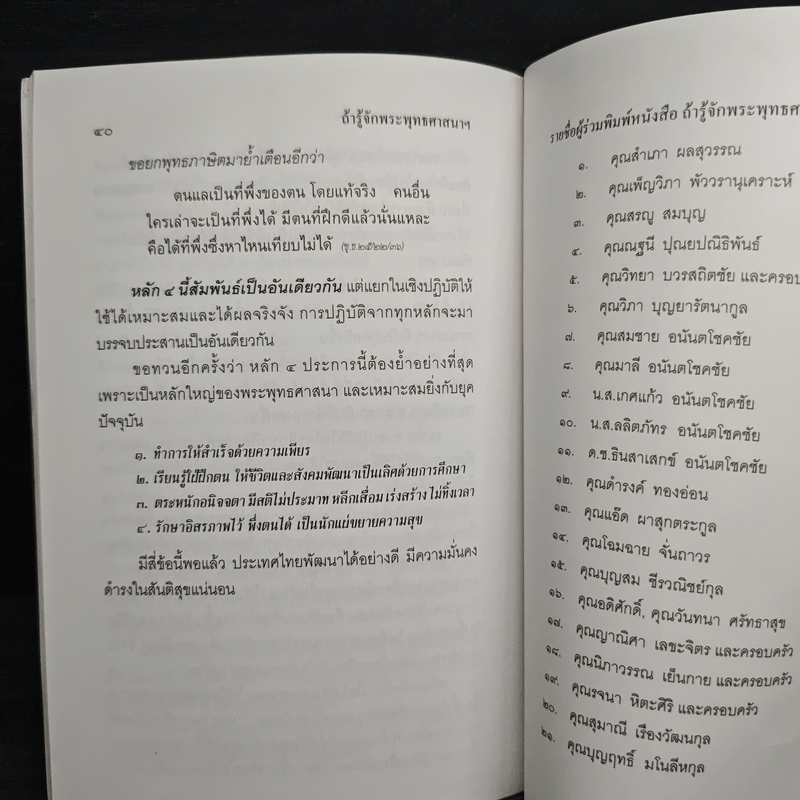 ๔๐
ถ้ารู้จักพระพุทธศาสนาฯ
ขอยกพุทธภาษิตมาย้ำเตือนอีกว่า
ตนแลเป็นที่พึ่งของตน โดยแท้จริง คนอื่น
ใครเล่าจะเป็นที่พึ่งได้ มีตนที่ฝึกดีแล้วนั่นแหละ
คือได้ที่พึ่งซึ่งหาไหนเทียบไม่ได้ (ขุ.ธ.๒๕/๒๒/๓๖)
หลัก ๔ นี้สัมพันธ์เป็นอันเดียวกัน แต่แยกในเชิงปฏิบัติให้
ใช้ได้เหมาะสมและได้ผลจริงจัง การปฏิบัติจากทุกหลักจะมา
บรรจบประสานเป็นอันเดียวกัน
ขอทวนอีกครั้งว่า หลัก ๔ ประการนี้ต้องย้ำอย่างที่สุด
เพราะเป็นหลักใหญ่ของพระพุทธศาสนา และเหมาะสมยิ่งกับยุค
ปัจจุบัน
๑. ทำการให้สำเร็จด้วยความเพียร
๒. เรียนรู้ใฝ่ฝึกตน ให้ชีวิตและสังคมพัฒนาเป็นเลิศด้วยการศึกษา
๓. ตระหนักอนิจจตา มีสติไม่ประมาท หลีกเสื่อม เร่งสร้าง ไม่ทิ้งเวลา
๔. รักษาอิสรภาพไว้ พึ่งตนได้ เป็นนักแผ่ขยายความสุข
มีสี่ข้อนี้พอแล้ว ประเทศไทยพัฒนาได้อย่างดี มีความมั่นคง
ดำรงในสันติสุขแน่นอน
รายชื่อผู้ร่วมพิมพ์หนังสือ ถ้ารู้จักพระพุทธศา
๑. คุณสำเภา ผลสุวรรณ
๒. คุณเพ็ญวิภา พัววรานุเคราะห์
๓. คุณสรญ สมบุญ
๔. คุณณฐนี ปุณยปณิธิพันธ์
๕. คุณวิทยา บวรสถิตชัย และครอบ
๖. คุณวิภา บุญยารัตนากูล
๗. คุณสมชาย อนันตโชคชัย
๘. คุณมาลี อนันตโชคชัย
๙. น.ส.เกศแก้ว อนันตโชคชัย
๑๐. น.ส.ลลิตภัทร อนันตโชคชัย
๑๑. ด.ช.ธินสาเสกข์ อนันตโชคชัย
๑๒. คุณดำรงค์ ทองอ่อน
๑๓. คุณแอ๊ด ผาสุกตระกูล
๑๔. คุณโฉมฉาย จั่นถาวร
๑๕. คุณบุญสม ชีรวณิชย์กุล
๑๖. คุณอดิศักดิ์, คุณวันทนา ศรัทธาสุข
๑๗. คุณญาณิศา เลขะจิตร และครอบครัว
๑๘. คุณนิภาวรรณ เย็นกาย และครอบครัว
๑๙. คุณรจนา หิตะศิริ และครอบครัว
๒๐. คุณสุมาณี เรืองวัฒนกุล
๒๑. คุณบุญฤทธิ์ มโนลีหกุล